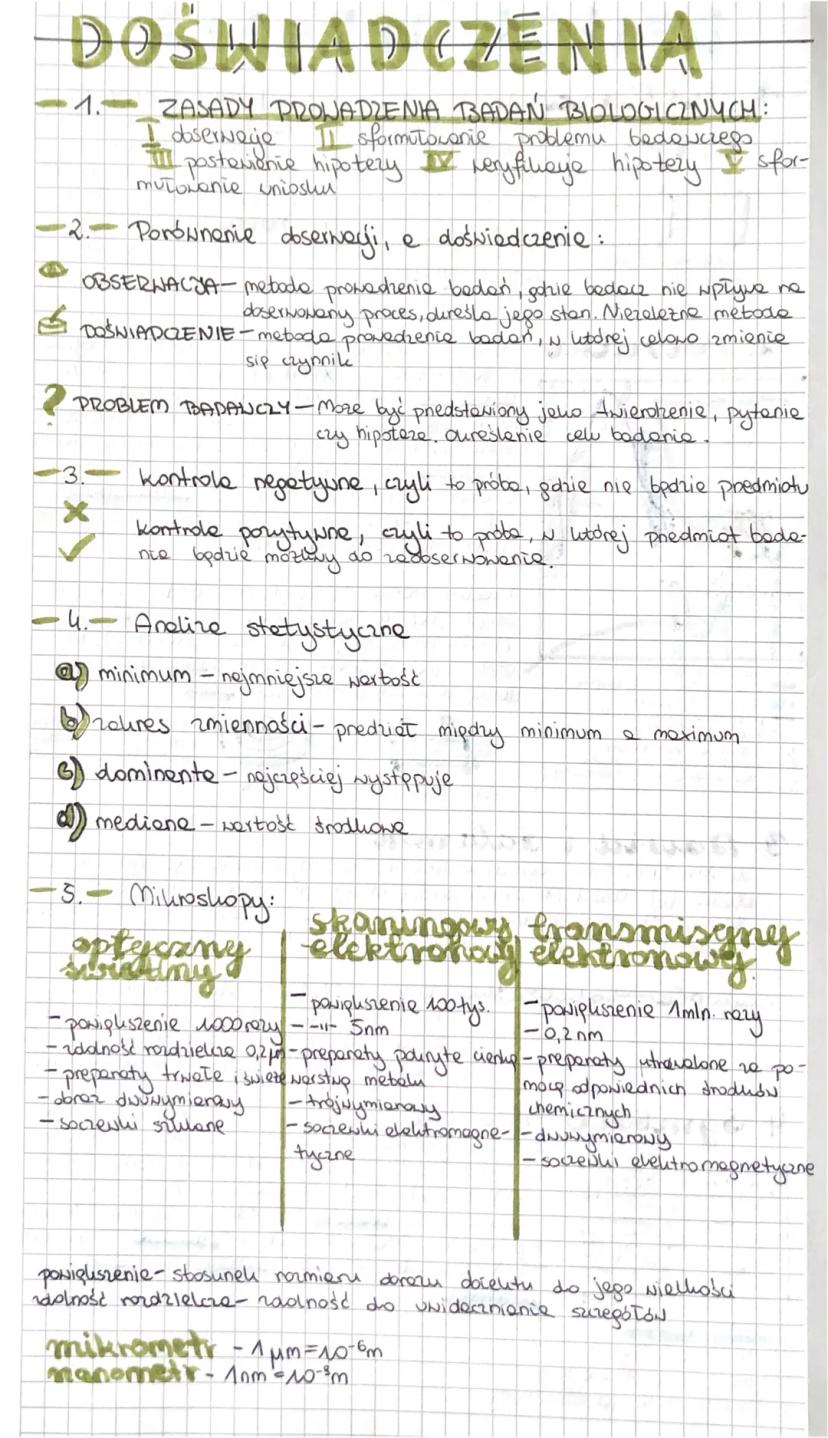 DOŚWIADCZENIA
1. ZASADY PROWADZENIA BADAŃ BIOLOGICZNYCH:
I obserwacja II sformułowanie problemu badawczego
III postawienie hipotezy IV weryfikacja hipotezy V sfor-
mułowanie wniosku
2. Porównanie obserwacji, a doświadczenie:
OBSERWACJA – metoda prowadzenia badań, gdzie badacz nie wpływa na
obserwowany proces, określa jego stan. Niezależna metoda
DOŚWIADCZENIE – metoda prowadzenia badań, w której celowo zmienia
się czynnik
? PROBLEM BADAWCZY – Może być przedstawiony jako twierdzenie, pytanie
czy hipoteza. określenie celu badania.
3. kontrola negatywna, czyli to próba, gdzie nie będzie przedmiotu
kontrola pozytywna, czyli to próba, w której przedmiot bada-
nia będzie możliwy do zaobserwowania.
4. Analiza statystyczna
a) minimum – najmniejsza wartość
b) zakres zmienności – przedział między minimum a maximum
c) dominanta – najczęściej występuje
d) mediana – wartość środkowa
5. Mikroskopy:
optyczny świetlny
- powiększenie 1000 razy
- zdolność rozdzielcza 0,2 μm
- preparaty trwałe i świeże
- obraz dwuwymiarowy
- soczewki szklane
skaningowy elektronowy
- powiększenie 100 tys.
- -"- 5nm
- preparaty pokryte cienką
warstwą metalu
- trójwymiarowy
- soczewki elektromagne-
tyczne
transmisyjny elektronowy
- powiększenie 1mln. razy
- 0,2 nm
- preparaty utrwalone za po-
mocą odpowiednich środków
chemicznych
- dwuwymiarowy
- soczewki elektromagnetyczne
powiększenie - stosunek rozmiaru obrazu obiektu do jego wielkości
zdolność rozdzielcza - zdolność do uwidaczniania szczegółów
mikrometr - 1 μm = 10⁻⁶m
nanometr - 1nm = 10⁻⁹m